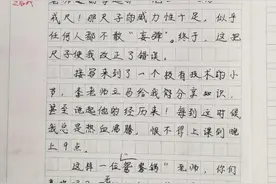 我尺！那尺子的威力性十足，似乎
任何人都不敢“妄弹”。终于，这把
尺子使我改正了错误。
接着来到了一个极有技术的小
节，李老师立马给我们分享知识，
甚至说起他的经历来！每到这时候，
我总是热血沸腾，恨不得上课到晚
上9点。
这样一位 老师，你们